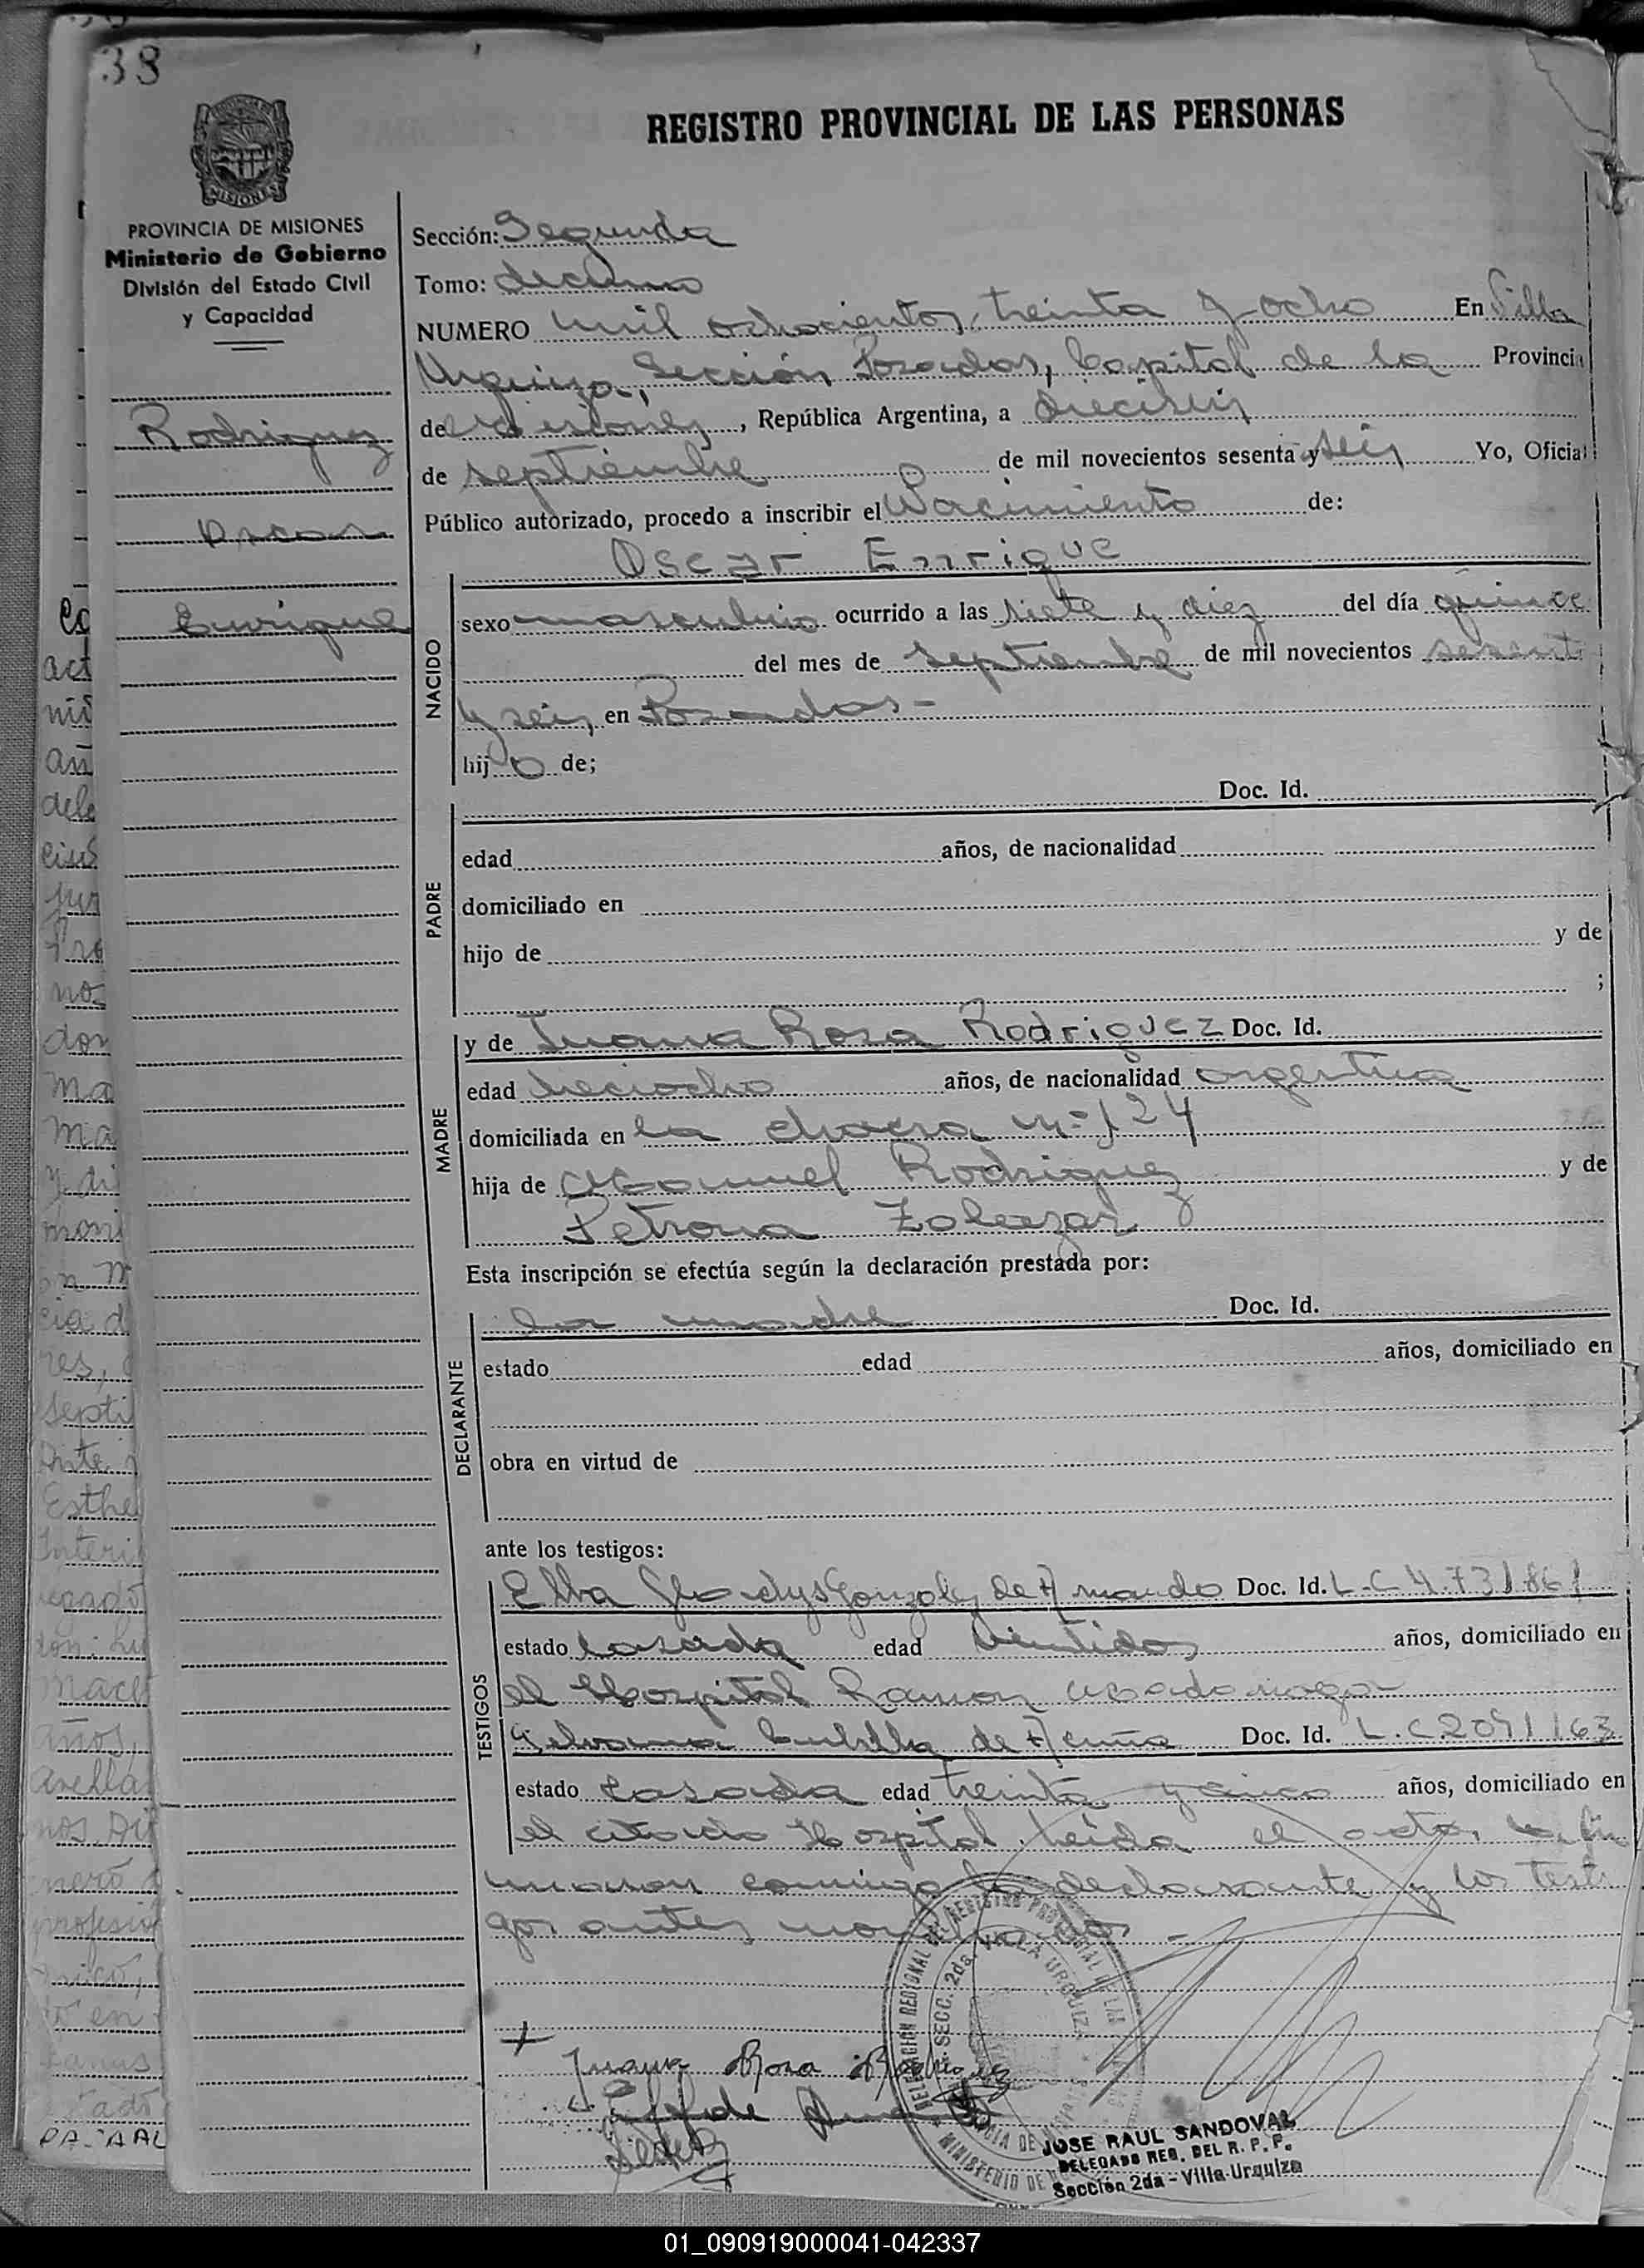 38
REGISTRO PROVINCIAL DE LAS PERSONAS
MISIONES
PROVINCIA DE MISIONES
Ministerio de Gobierno
División del Estado Civil
y Capacidad
Rodriguez
Oscar
Enrique
Sección: Segunda
Tomo: decimo
NUMERO mil ochocientos, treinta y ocho En Villa
Urquiza, Sección Posadas, Capital de la Provincia
de Misiones, República Argentina, a dieciseis
de septiembre de mil novecientos sesenta y seis Yo, Oficial
Público autorizado, procedo a inscribir el Nacimiento de:
Oscar Enrique
NACIDO
sexo masculino ocurrido a las siete y diez del día quince
del mes de septiembre de mil novecientos sesenta
y seis, en Posadas-
hijo de;
PADRE
Doc. Id.
edad años, de nacionalidad
domiciliado en
hijo de y de
;
MADRE
y de Juana Rosa Rodriguez Doc. Id.
edad dieciocho años, de nacionalidad argentina
domiciliada en la chacra nº 124
hija de Manuel Rodriguez y de
Petrona
Esta inscripción se efectúa según la declaración prestada por:
DECLARANTE
la madre Doc. Id.
estado edad años, domiciliado en
obra en virtud de
ante los testigos:
TESTIGOS
Elba Gladys Gonzalez de Amando Doc. Id. L.C 4.731861
estado casada edad veintidos años, domiciliado en
el Hospital Ramon Madariaga-
de Acuña Doc. Id. L.C 2091163
estado casada edad treinta y cinco años, domiciliado en
el citado Hospital. Leida el acta, la fir
maron conmigo la declarante y los testi
gos antes mencionados -
Juana Rosa Rodriguez
DELEGACION REGIONAL DEL REGISTRO PROVINCIAL DE LAS
SECC. 2da. VILLA URQUIZA
MINISTERIO DE
JOSE RAUL SANDOVAL
DELEGADO REG. DEL R. P. P.
Sección 2da - Villa Urquiza
01_090919000041-042337